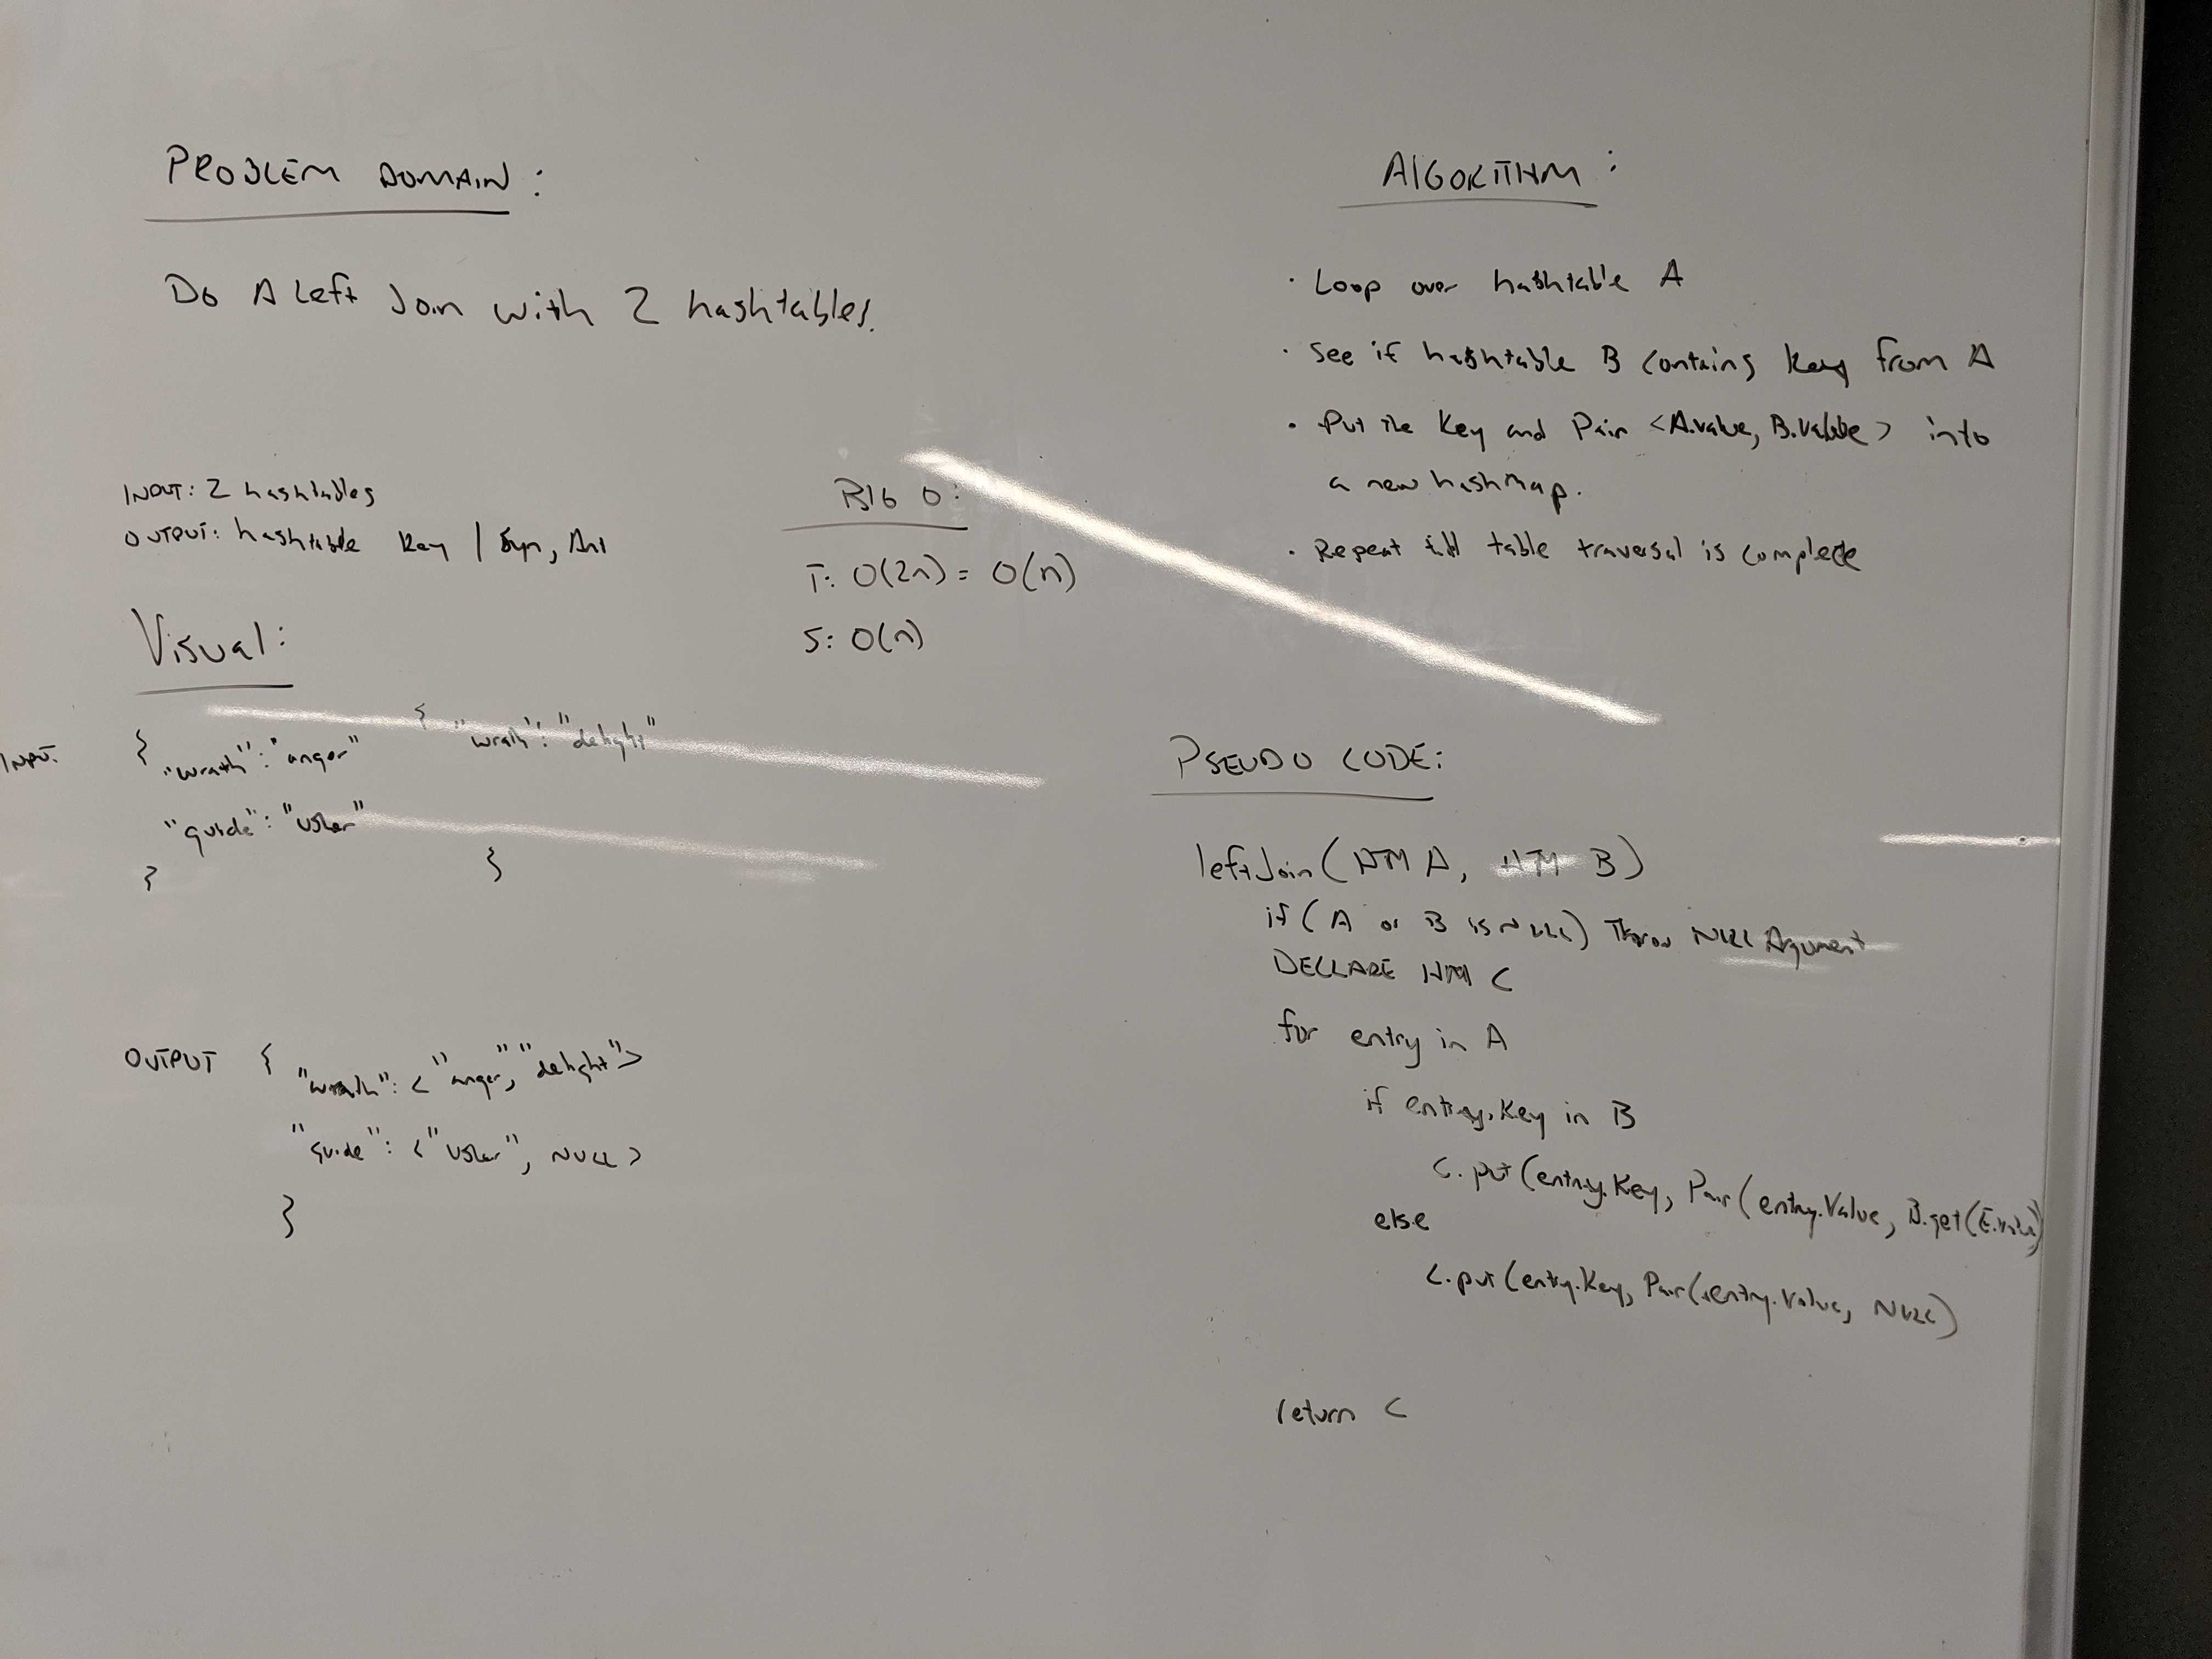 PROBLEM DOMAIN:
Do A Left Join with 2 hashtables.
INPUT: 2 hashtables
OUTPUT: hashtable Key | Syn, Ant
BIG O:
T: O(2n) = O(n)
S: O(n)
Visual:
INPUT:
{ "wrath": "anger"
"guide": "Usher"
}
{ "wrath": "delight"
}
OUTPUT {
"wrath": <"anger", "delight">
"guide": <"Usher", NULL>
}
ALGORITHM:
· Loop over hashtable A
· See if hashtable B contains key from A
· Put the Key and Pair <A.value, B.value> into
a new hashmap.
· Repeat till table traversal is complete
PSEUDO CODE:
leftJoin(HM A, HM B)
if (A or B is NULL) Throw NULL Argument
DECLARE HM C
for entry in A
if entry.Key in B
C.put(entry.Key, Pair(entry.Value, B.get(E.value)
else
C.put(entry.Key, Pair(entry.Value, NULL)
return C